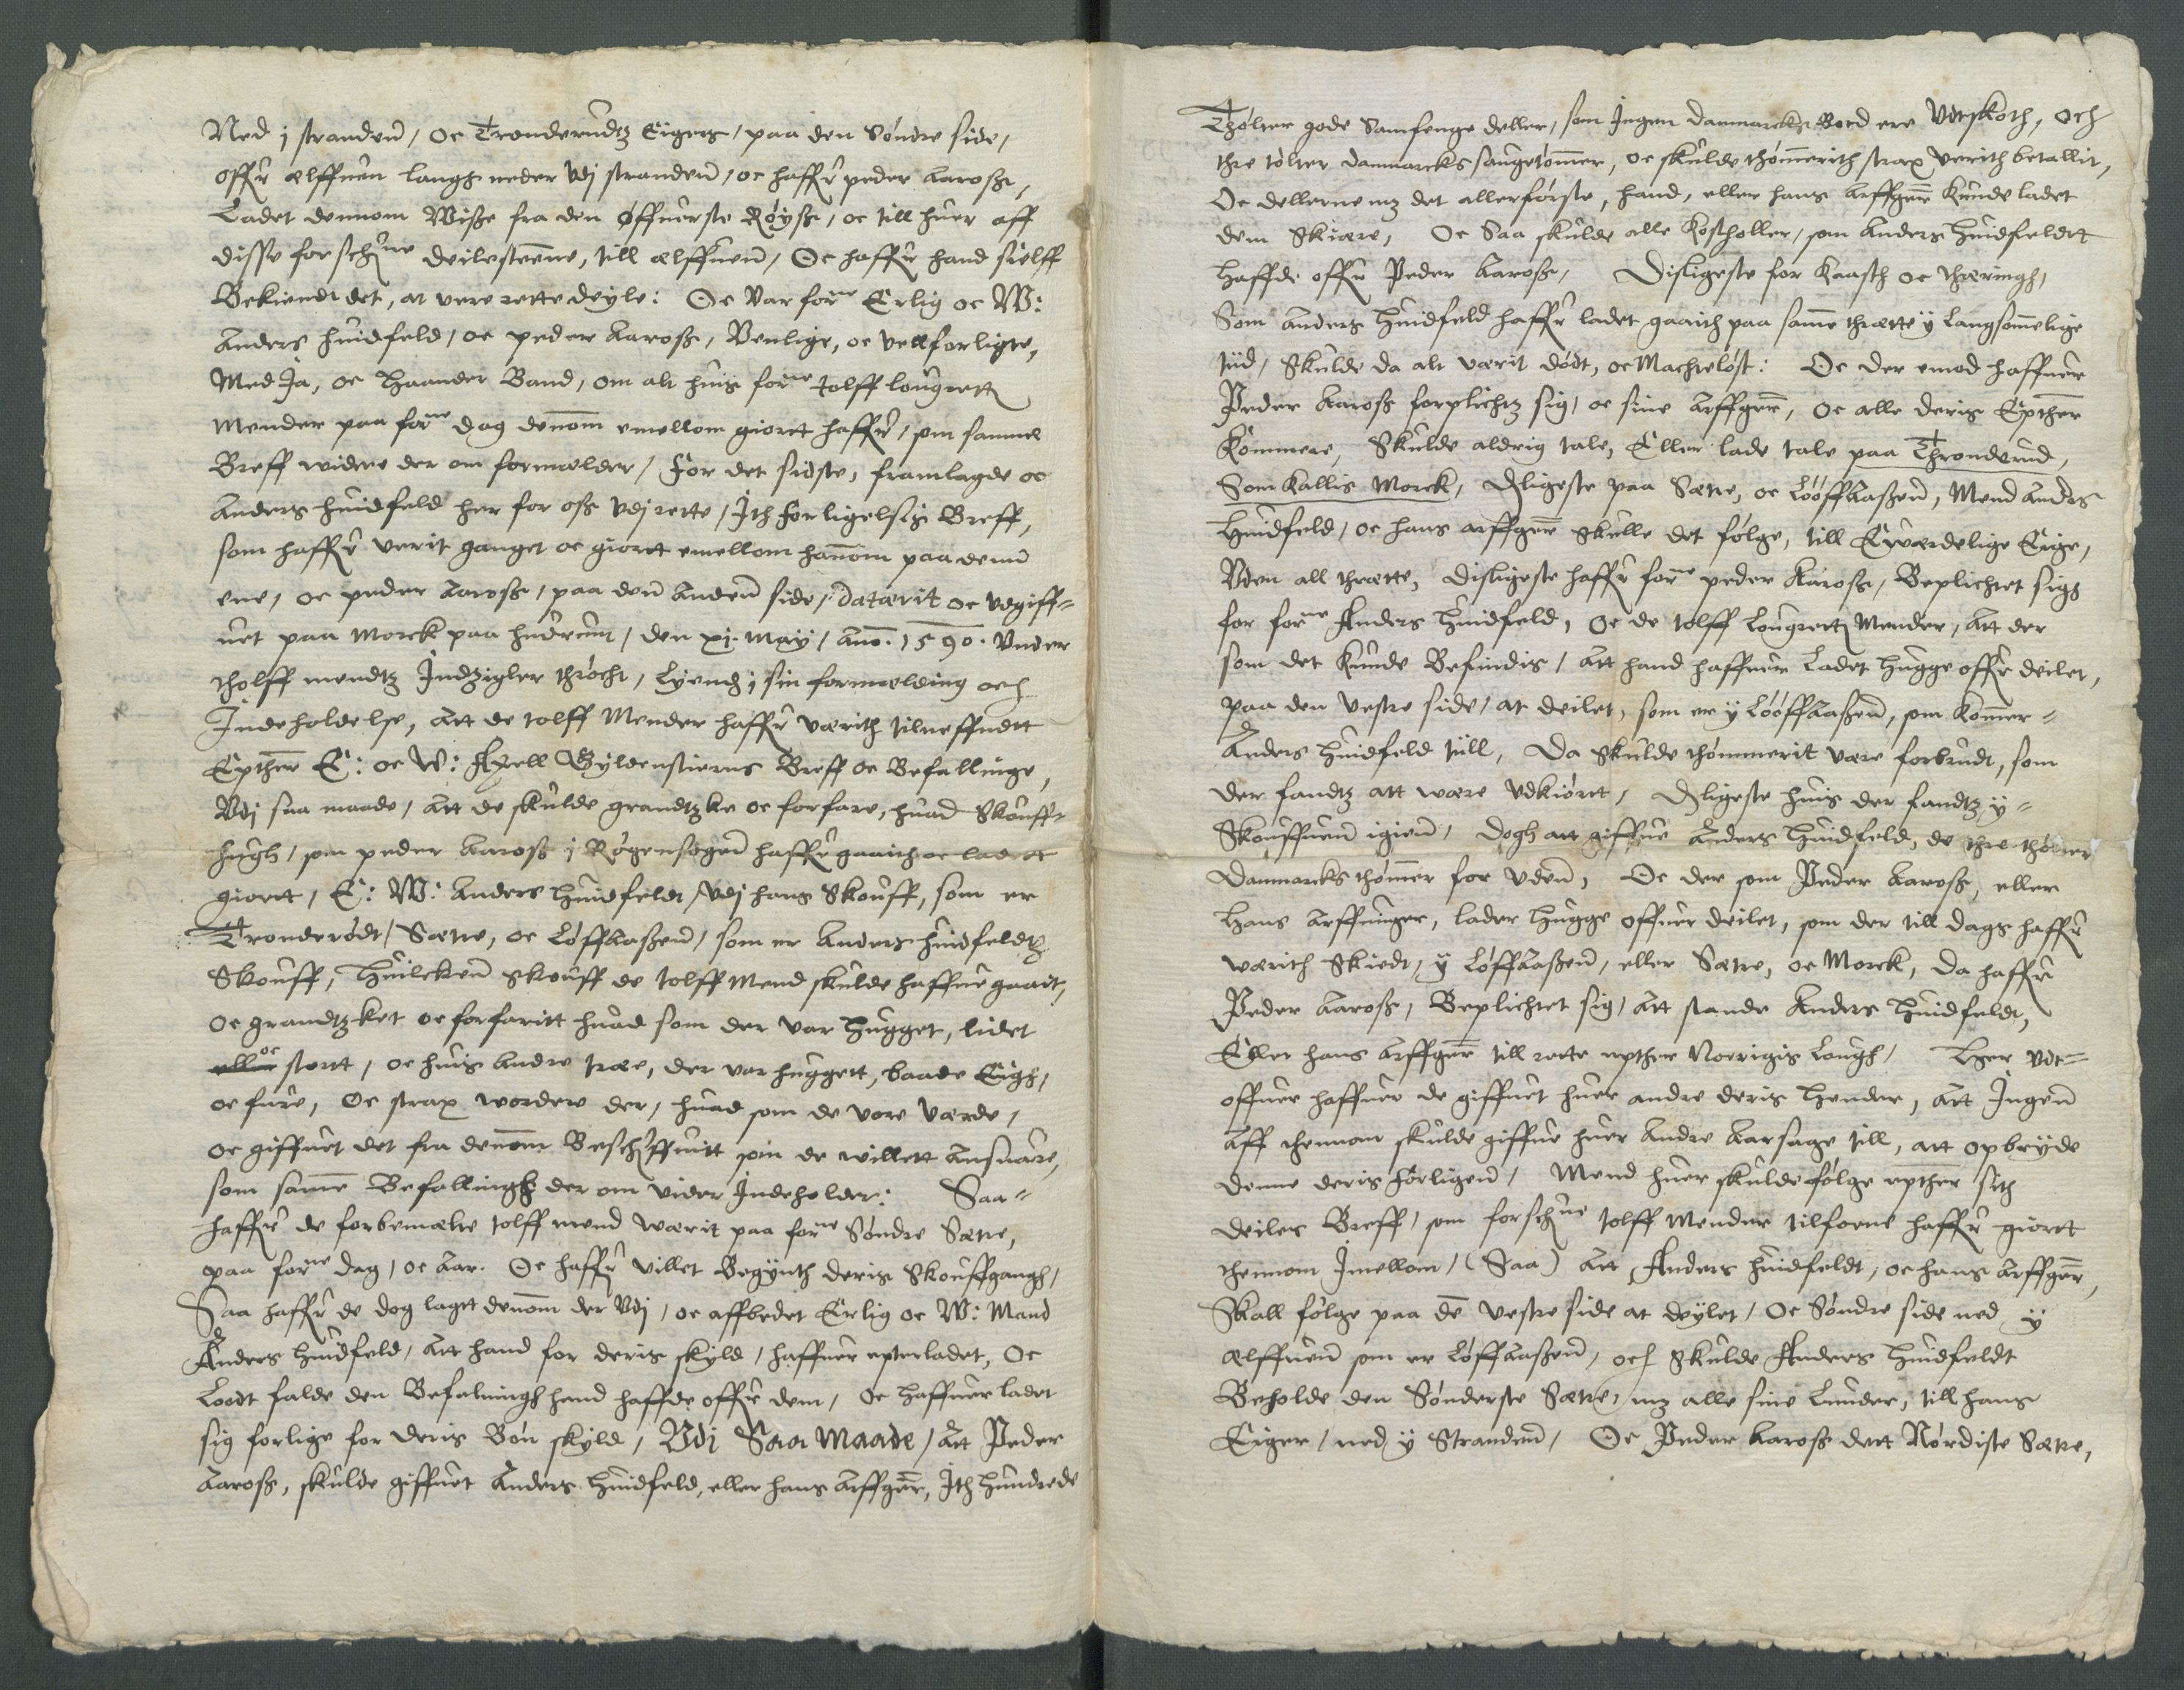 Ned j strandenn, oc Tronderudtz Eigers, paa den Søndre side,
offr ælffuen langs neder Vdj strandenn, oc haffr peder Aaross,
Ladet dennom Wiisse fra den øffuerste Røyss, oc till huer aff
disse forschne deilesteene, till ælffuenn, Oc haffr hand sielff
Bekiendt det, at vere rette deyle: Oc Var forne Erlig oc W:
Anders huidfeld, oc peder Aaross, Venlige, oc vell forligte,
Med Ja, oc Haander Baand, om alt huis forne tolff lougrett
Mender paa forne dag dennom emellom giort haffr, som samme
Breff widere der om formelder, For det sidste, framlagde oc
Anders huidfeld her for oss vdj rette, Ith forligelsis Breff,
som haffr verit ganget oc giort emellom hannom paa denn
ene, oc peder Aaross, paa den Anden side, datærit oc vdgiff=
uet paa Morck paa hudrum, den xj. May, Ano. 1590. Vnder
tholff mendtz Indzigler thrøcht, Lyendz j sin formelding och
Indeholdelse, Att de tolff Mender haffr værith tilneffndt
Epther E: oc W: Axell Gyldenstierns Breff oc Befallinge,
Vdj saa maade, Att de skulde grandtzke oc forfare, huad Skouff=
hugh, som peder Aaross j Røgensogen haffr gaaith oc ladet
giort, E: W: Anders Huidfeldt, Vdj hans Skouff, som er
Tronderødt, Sætre, oc Løffaassen, som er Anders huidfeldtz
Skouff, Huilcken Skouff de tolff Mend skulde haffue gaait,
oc grandtzket oc forfaritt huad som der var Hugget, lidet
eller oc stortt, oc huis Andre træe, der var huggett, baade Eigh,
oc fure, Oc strax wordere der, huad som de vore værde,
oc giffuet det fra dennom Beschriffuitt som de willett Ansuare,
som samme Befallingh der om vider Indeholder: Saa=
haffr de forbemælte tolff mend wærit paa forne Søndre Sætre,
paa forne dag, oc Aar. Oc haffr villet Begynth deris Skouffgangh,
Saa haffr de dog laget dennom der Vdj, oc affbedet Erlig oc W: Mand
Anders Huidfeld, Att hand for deris skyld, haffuer epterladet, Oc
Loedt falde den Befalningh hand haffde offr dem, oc Haffuer ladet
sig forlige for deris Bøn skyld, Vdj Saa Maade, Att Peder
Aaross, skulde giffuet Anders Huidfeld, eller hans Arffger, Ith Hundrede
Thølter gode Samfenge deller, som Ingen danmarcks Bord ere Vdtskoth, och
thre tølter danmarcks saugtømmer, oc skulde thømmerith strax verith betallit,
Oc dellerne mz det allerførste, hand, eller hans Arffger kunde ladet
dem Skiære, Oc Saa skulde alle kostholler, som Anders Huidfeldtt
Haffde offr Peder Aaross, Disligeste for kaasth oc thæringh,
Som Anders Huidfeld haffr ladet gaaith paa samme thrætte y Langsommelige
tiid, Skulde da alt værit dødt, oc Machteløst: Oc der emod haffuer
Peder Aaross forplichtz sig, oc sine Arffger, oc alle deris Epther
kommere, Skulde aldrig tale, Eller lade tale paa Thronderud,
Som kallis Morck, dligeste paa Sætre, oc Lóóffaassen, Mend Anders
Huidfeld, oc hans arffger Skulle det følge, till Ewærdelige Eige,
Vden all thrætte, disligeste haffr forne peder Aaross, Beplichtet sigh
for forne Anders Huidfeld, Oc de tolff Lougrett Mender, Att der
som det kunde Befindis, Att hand haffuer Ladet Hugge offr deilet,
paa den vestre side, at deilet, som er y Lóóffaassen, som kommer=
Anders Huidfeld till, Da Skulde thømmerit være forbrudt, som
der fandtz att wære Vdkiørt, dligeste huis der fandtz y=
Skouffuen igien, dogh att giffue Anders Huidfeld, de thre thølter
danmarcks thømmer for Vden, Oc der som Peder Aaross, eller
Hans Arffuinger, lader Hugge offuer deilet, som der till dags haffr
wærith Skiedt, y Løffaassen, eller Sætre, oc Morck, Da haffr
Peder Aaross, Beplichtet sig, Att stande Anders Huidfeldt,
Eller hans Arffger till rette epther Norrigis Lough, Her vdt=
offuer haffuer de giffuet huer andre deris Hender, Att Ingen
Aff thennom skulde giffue huer Andre Aarsage till, att opbryde
denne deris forligen, Mend huer skulde følge epther sith
deiles Breff, som forschne tolff Mender tilforne haffr giort
thennom Imellom, (Saa) Att Anders huidfeldt, oc hans Arffger,
Skall følge paa de vestre side at deylet, Oc Søndre side ned y
ælffuen som er Løffaassen, och Skulde Anders Huidfeldt
Beholde den Sønderste Sætre, mz alle sine Lunder, till hans
Eiger, ned y Stranden, Oc Peder Aaross dett Nørdiste Sætre,